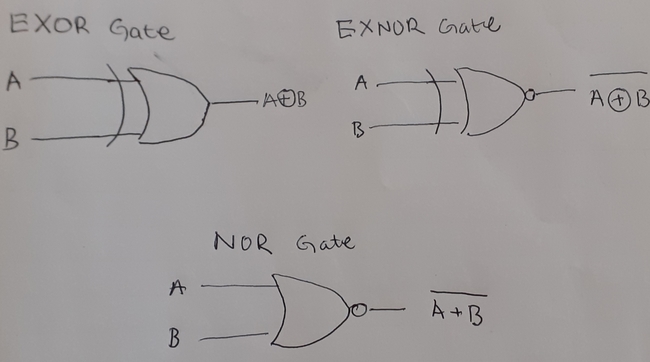 EXOR Gate
A
B
A⊕B
EXNOR Gate
A
B
A̅ ̅⊕̅ ̅B̅
NOR Gate
A
B
A̅+̅B̅